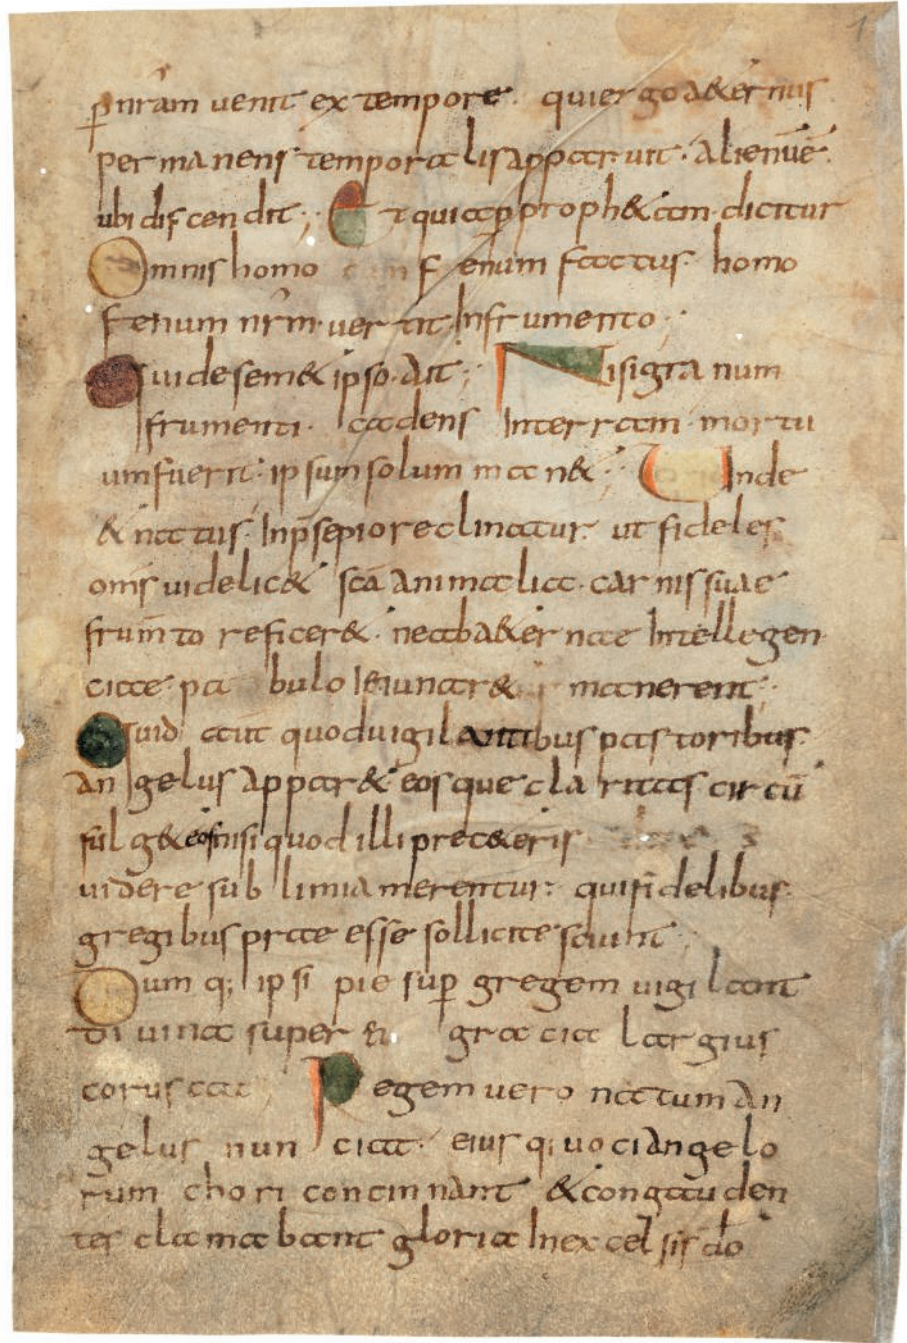 p nr̄am uenit ex tempore. qui ergo aet̄ernus
permanens temporalis apparuit. alienū ē.
ubi discendit; Et quia ꝑ prophetam dicitur
Omnis homo fenum factus homo
fenum nr̄m. uertit In frumento;
Qui de semet ipso. ait; Nisi granum
frumenti. cadens In terram mortu
um fuerit. ipsum solum manet; Unde
et natus. In p̄sepio reclinatur. ut fideles
om̄s uidelicet sc̄a animalia. carnis suae
frum̄to reficeret. ne ab aeternae Intellegen
ciae pabulo Ieiuna manerent.
Quid aut quod uigilantibus pastoribus
angelus apparet eosque claritas circū
fulget eos nisi quod illi pre ceteris
uidere sublimia merentur: qui fidelibus
gregibus prae esse sollicite sciunt;
Dum q; ipsi pie suꝑ gregem uigilant
diuina super eos gracia largius
coruscat; Regem uero natum an
gelus nunciat. eius q; uoci angelo
rum chori concinnant et congauden
tes clamabant gloria In excelsis do